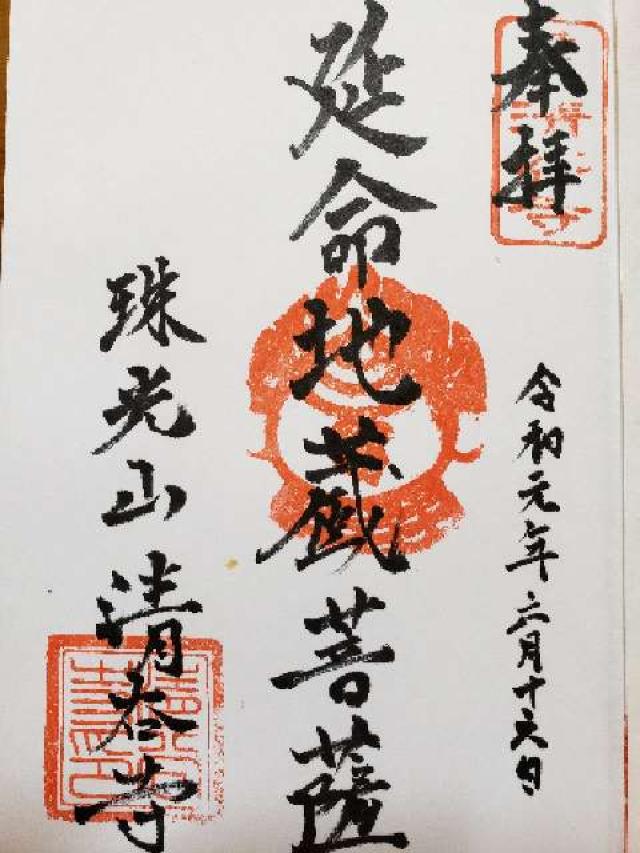 奉拝
令和元年六月十六日
延命地蔵菩薩
珠光山清谷寺